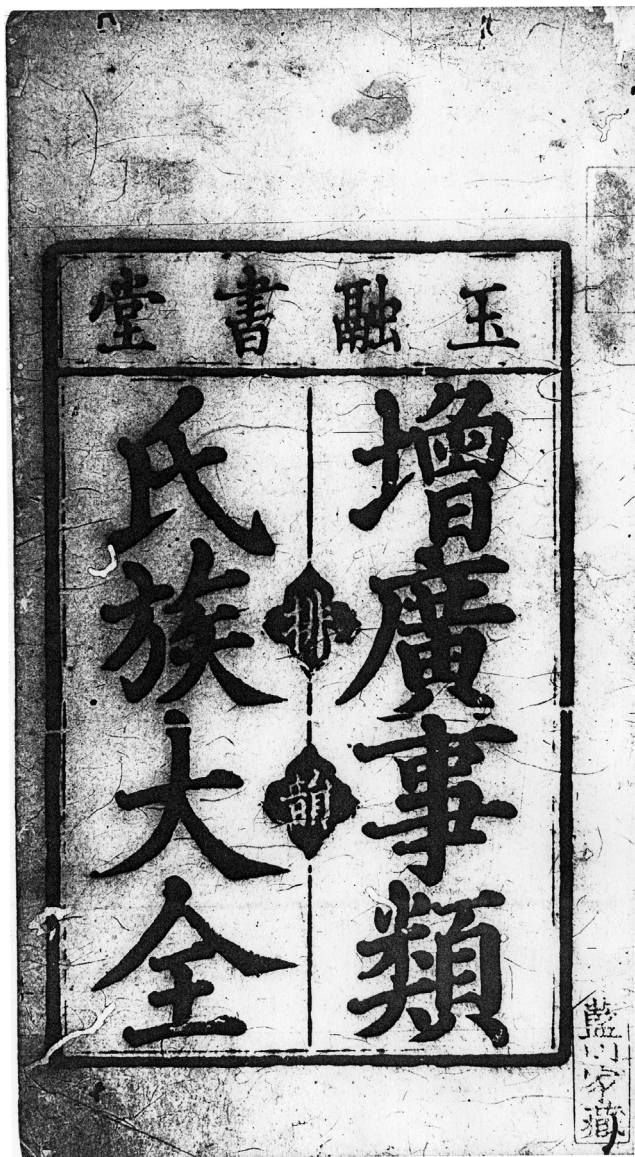 玉融書堂
增廣事類
排韻
氏族大全
藍川家藏